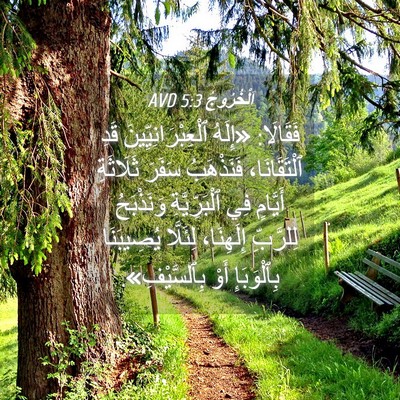 اَلْخُرُوجَ 5:3 AVD
فَقَالَا: «إِلَهُ ٱلْعِبْرَانِيِّينَ قَدِ
ٱلْتَقَانَا، فَنَذْهَبُ سَفَرَ ثَلَاثَةِ
أَيَّامٍ فِي ٱلْبَرِّيَّةِ وَنَذْبَحُ
لِلرَّبِّ إِلَهِنَا، لِئَلَّا يُصِيبَنَا
بِٱلْوَبَإِ أَوْ بِٱلسَّيْفِ»